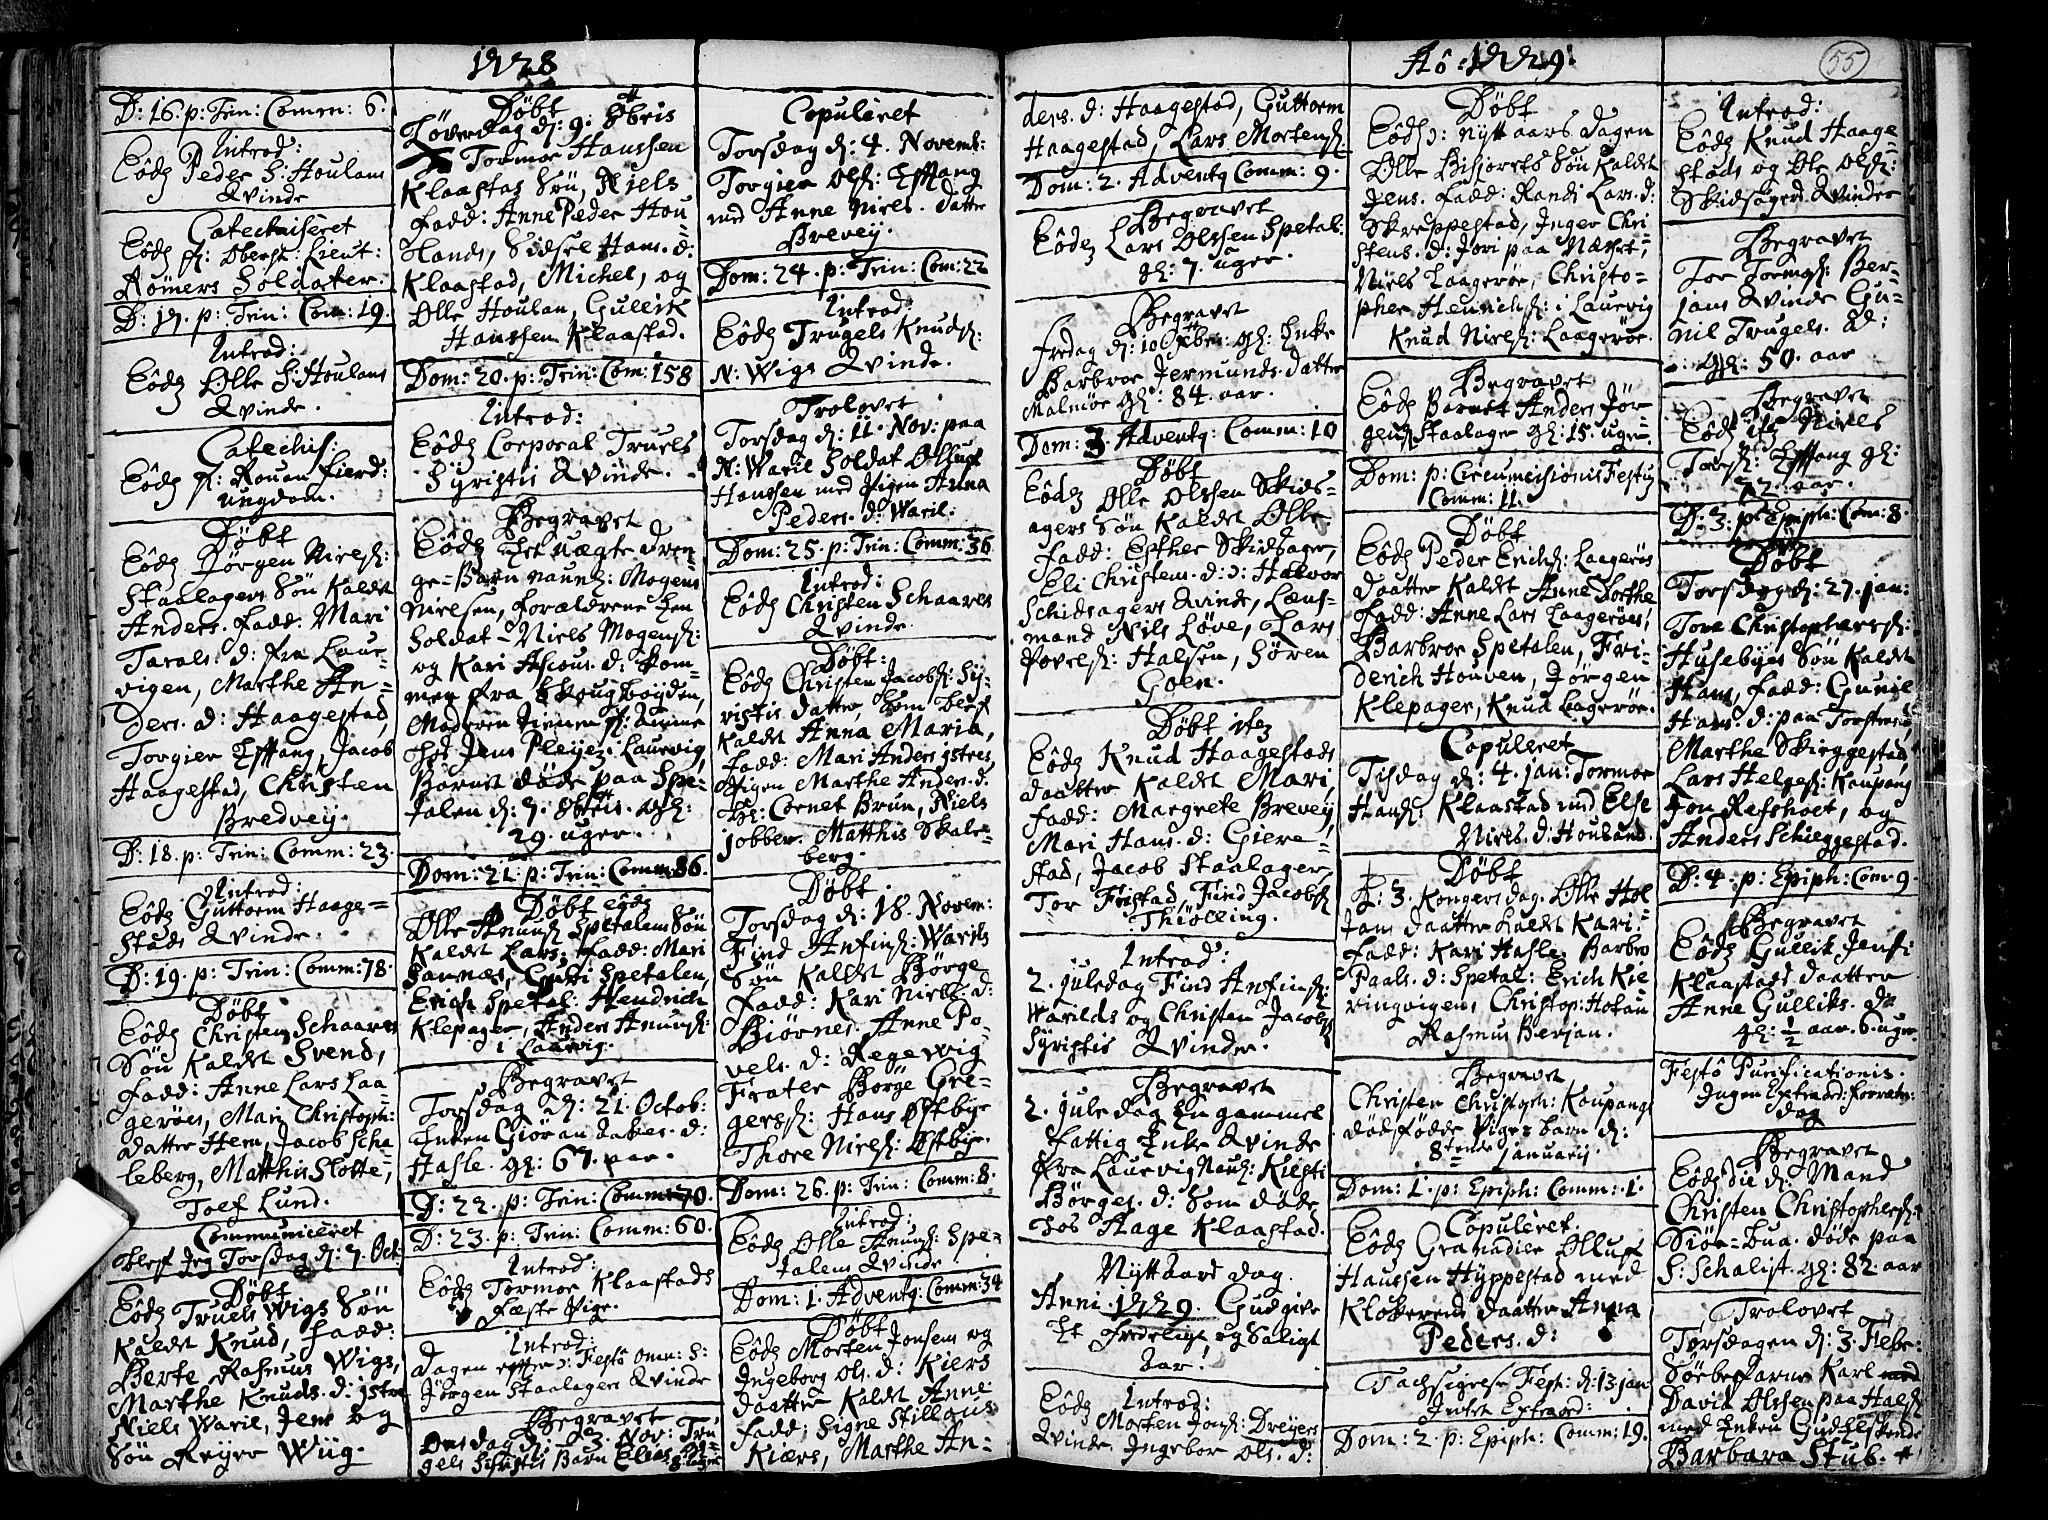 1728
D: 16. p: Trin: Comm: 6.
Introd:
Eôdz Peder S: Houlans
Qvinde
Catechiseret
Eôdz H: Oberst: Lieut:
Römers Soldater.
D: 17. p: Trin: Com: 19.
Introd:
Eôdz Olle S: Houlans
Qvinde.
Catechis:
Eôdz
ungdom.
Døbt
Eôdz Jørgen Niels:
Staalagers Sön Kaldt
Anders. Fadd: Mari
Tarals. d: fra Laur=
vigen, Marthe An=
ders. d: Haagestad,
Torgier Effang, Jacob
Haagestad, Christen
Bredvey.
D: 18. p: Trin: Comm: 23.
Introd:
Eôdz Guttorm Haage=
stads Qvinde.
D: 19. p: Trin: Comm: 78.
Døbt
Eôdz Christen Schaares
Sön Kaldt Svend,
Fadd: Anne Lars Laa
gerøes, Mari Christoph:
datter Hem, Jacob Scha
leberg, Matthis Slotte,
Tolf Lund.
Communiceret
Torsdag d: 7. Oct:
Døbt
Eôdz Truels Wigs Sön
Kaldt Knud, Fadd:
Berte Rasmus Wigs,
Marthe Knuds. d: istre
Niels Waril, Jens og
Sön Reyer Wiig.
Døbt
Løverdag d: 9: 8bris
Tormoe Hanssen
Klaastas Sön, Niels
Fadd: Anne Peder Hou
lands, Sidsel Hans. d:
Klaastad, Michel, og
Olle Houlan, Gullik
Hanssen Klaastad.
Dom: 20. p: Trin: Com: 158
Introd:
Eôdz Corporal Truels
Syristis Qvinde.
Begravet
Eôdz Et uægte dren=
ge=Barn naun: Mogens
Nielsen, Forældrene Een
Soldat Niels Mogens:
og Kari Ascous. d: kom
men fra Skougboyden,
Moderen
hos Jens Pleyez i Laurvig,
Barnet døde paa Spe=
talen d: 7. 8bris. gl:
29. uger.
Dom: 21. p: Trin: Comm: 86.
Døbt Eôdz
Olle Anuns: Spetalens Sön
Kaldt Lars. Fadd: Mari
Sannæs, Guri Spetalen,
Erich Spetal: Hendrich
Klepager, Anders Anuns:
i Laurvig.
Begravet
Torsdag d: 21. Octob:
Enken Giöran d:
Hasle. gl: 67. aar.
D: 22. p: Trin: Comm: 70.
D: 23. p: Trin: Comm: 60.
Introd:
Eôdz Tormoe Klaastads
Fæste Pige.
Introd:
Dagen efter Festô Omn: S:
Jörgen Staalagers Qvinde
Begravet
Onsdag d: 3. Nov: Tru
gels Syristis Barn Elias
Copuleret
Torsdag d: 4. Novemb:
Torgier Ols: Effang
med Anne Niels. datter
Brevey.
Dom: 24. p: Trin: Com: 22
Introd
Eôdz Trugels Knuds:
N: Wigs Qvinde.
Trolovet
Torsdag d: 11. Nov: paa
N: Waril Soldat Olluf
Hanssen med Pigen Anna
Peders. d: Waril.
Dom: 25. p: Trin: Comm: 36
Introd:
Eôdz Christen Schaares
Qvinde.
Døbt:
Eôdz Christen Jacobs: Sy=
ristis datter, Som blef
Kaldt Anna Maria,
Fadd: Mari Anders istres,
Pigen Marthe Anders. d.
Hr: Cornet Brun, Niels
jobber. Matthis Skale=
berg.
Døbt
Torsdag d: 18. Novem:
Find Anfins: Warils
Sön Kaldt Børge
Fadd: Kari Niels: d:
Biørnes. Anne Po=
vels. d: Regewig
Børge Gre=
gers: Hans Østbye
Thore Niels: Østbye.
Dom: 26. p: Trin: Comm: 8.
Introd:
Eôdz Olle Anuns: Spe=
talens Qvinde
Dom: 1. Advent: Comm: 34
Døbt
Eôdz Morten Jonsens og
Ingeborg Ols. d: Kiers
daatter Kaldt Anne
Fadd: Signe Stillaus
Kiers, Marthe An=
ders. d: Haagestad, Guttorm
Haagestad, Lars Mortens:
Dom: 2. Advent: Comm: 9.
Begravet
Eôdz Lars Olssen Spetal:
gl: 7. uger.
Begravet
Fredag d: 10 Xber: gl: Enke
Barbroe Jermunds. datter
Malmøe gl: 84. aar.
Dom: 3 Advent: Comm: 10
Døbt
Eôdz Olle Olssen Skids=
agers Sön Kaldt Olle.
Fadd: Esther Skidsager,
Eli Christens. d: ɔ: Halvor
Schidsagers Qvinde, Læns=
mand Nils Løve, Lars
Povels: Halsen, Søren
Goen.
Døbt itz
Eôdz Knud Haagestads
daatter Kaldt Mari,
Fadd: Margrete Brevey,
Mari Hans. d: Giere=
stad, Jacob Staalager,
Tor Find Jacobs:
Thiølling.
Introd:
2. juledag Find Anfins:
Warilds og Christen Jacobs:
Syristis Qvinder.
Begravet
2. jule dag En gammel
fattig Enke Qvinde
fra Laurvig Naun: Kiesti
Börges. d: Som döde
hos Aage Klaastad.
Nyttaars dag.
Anni. 1729. Gud give
Et Fredeligt og Saligt
Aar!
Introd:
Eôdz Morten Jons: Dreyers
Qvinde Ingebor Ols. d:
Aô: 1729.
55
Døbt
Eôdz ɔ: nytt aars dagen
Olle Bisjorets Sön Kaldt
Jens. Fadd: Randi Lars. d:
Skreppestad, Inger Chri
stens. d: Jori paa Næsset,
Niels Laagerøe, Christo=
pher Henrichs: i Laurvig
Knud Niels: Laagerøe.
Begravet
Eôdz Barnet Anders Jör
gens: Staalager gl: 15. uger.
Dom: p: Circumcisionis Festum
Comm: 11.
Døbt
Eôdz Peder Erichs: Laagerøs
daatter Kaldt Anne Dorthe
Fadd: Anne Lars Laagerøes,
Barbroe Spetalen, Fri=
derich Houven, Jørgen
Klepager, Knud Laagerøe.
Copuleret
Tisdag d: 4. jan: Tormoe
Hans: Klaastad med Else
Niels. d: Houland
Døbt
H: 3. Kongers dag. Olle Hol
Jans daatter Kaldt Kari.
Fadd: Kari Hasle. Barbro
Paals. d: Spetal: Erich Kie
ringvigen, Christop: Hotau
Rasmus Berjan.
Begravet
Christen Christoph: Koupangs
dødfødde Pige barn d:
8tende january.
Dom: 1. p: Epiph: Comm: 1.
Copuleret.
Eôdz Granadier Olluf
Hanssen Hyppestad med
Klokerens daatter Anna
Peders. d:
Tachsigelse Fest: d: 13 jan
Intet Extraord:
Dom: 2. p: Epiph: Comm: 19.
Introd:
Eôdz Knud Haage=
stads og Ole Ols:
Skidsagers Qvinder
Begravet
Tor Torms: Ber=
jans Qvinde Gu=
nil Trugels. d:
gl: 50. aar
Begravet
Eôdz itz Niels
Tors: Effang gl:
72. aar.
D: 3. p: Epiph: Com: 8.
Døbt
Torsdag d: 27. jan:
Tore Christophers:
Husebyes Sön Kaldt
Hans, Fadd: Gunil
Hans. d: paa Torstrand,
Marthe Skieggestad,
Lars Helges: Kaupang
Jon Refsholt, og
Anders Schieggestad.
D: 4. p: Epiph: Com 9.
Begravet
Eôdz Gullik Jens:
Klaastads daatter
Anne Gulliks. d:
gl: ½ aar. 6. uger
Festô Purificationis.
Ingen Extraord: Forretn:
dag
Begravet
Eôdz die d: Mand
Christen Christophers:
Siøe=bua. døde paa
S: Schalist. gl: 82. aar
Trolovet
Torsdagen d: 3. Febr:
Søebefarne Karl
David Olssen paa Hals:
med Enken Gudelskende
Barbara Stub.